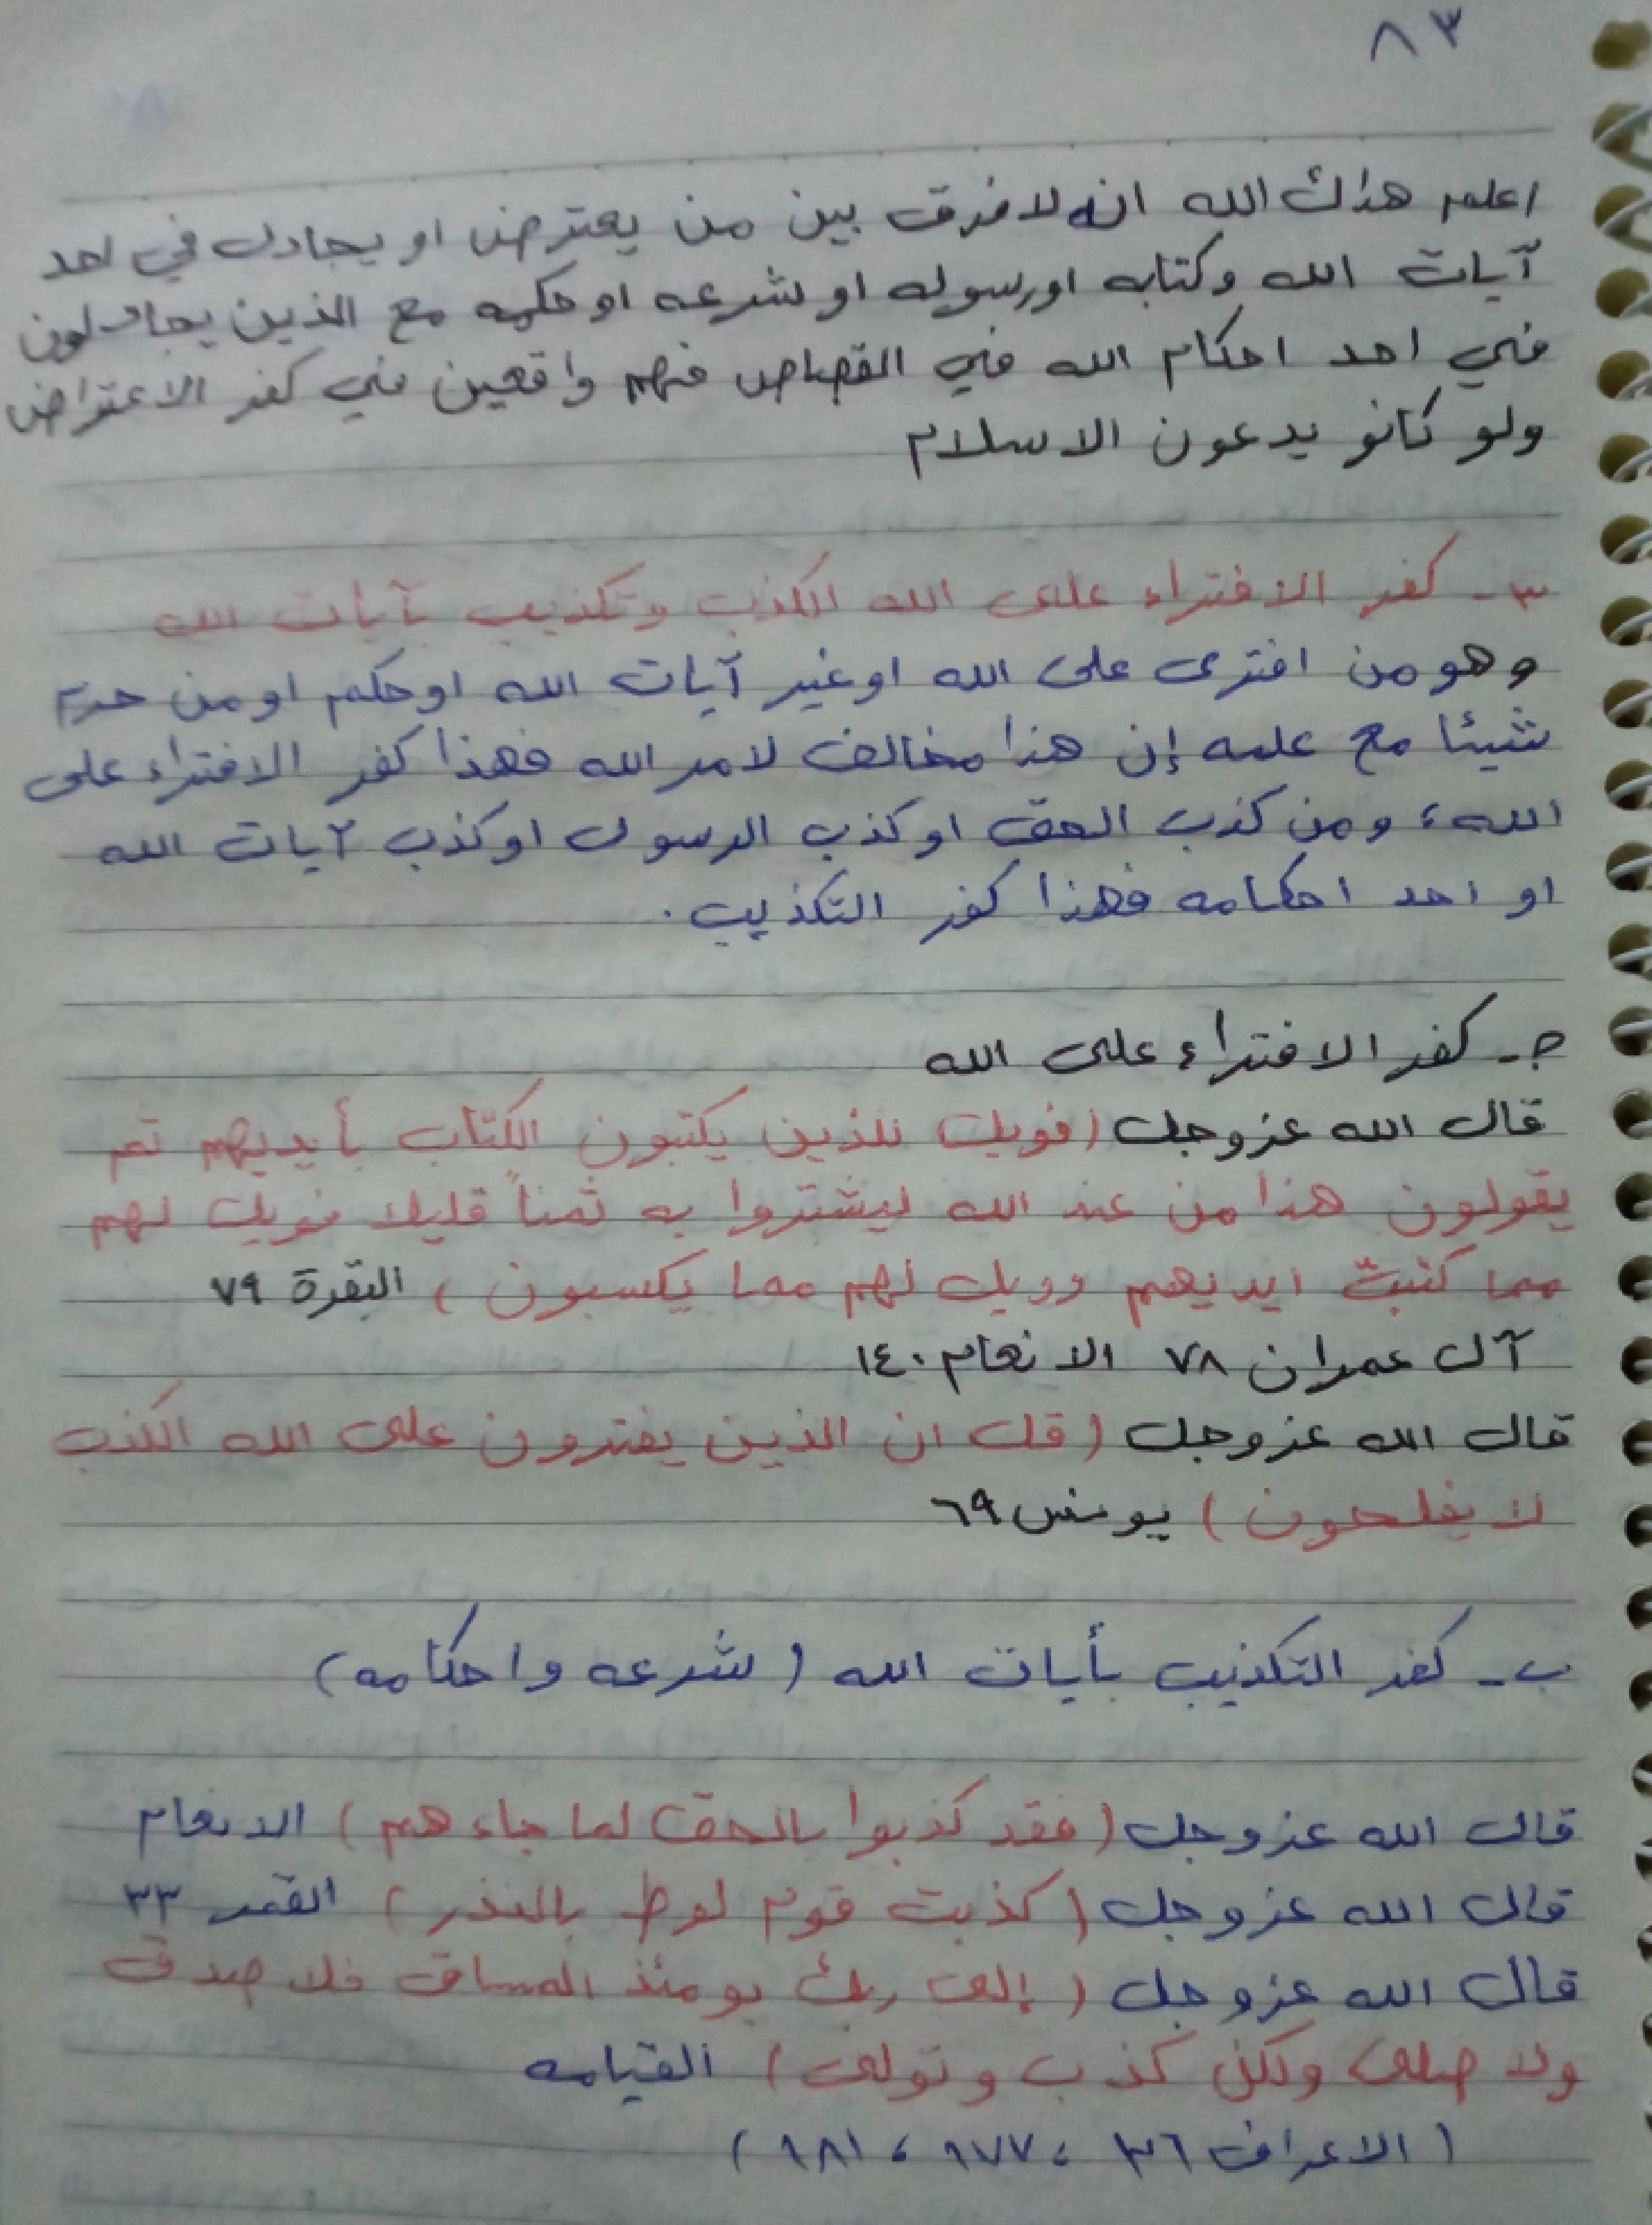 ٨٣
اعلم هداك الله انه لا فرق بين من يعترض او يجادل في احد
آيات الله وكتابه او رسوله او شرعه او حكمه مع الذين يجادلون
في احد احكام الله في القصاص فهم واقعين في كفر الاعتراض
ولو كانو يدعون الاسلام
٣- كفر الافتراء على الله الكذب وتكذيب بآيات الله
وهو من افترى على الله او غير آيات الله او حكم او من حرم
شيئا مع علمه إن هذا مخالف لامر الله فهذا كفر الافتراء على
الله، ومن كذب الحق او كذب الرسول او كذب آيات الله
او احد احكامه فهذا كفر التكذيب.
كفر الافتراء على الله
قال الله عزوجل (فويل للذين يكتبون الكتاب بأيديهم ثم
يقولون هذا من عند الله ليشتروا به ثمناً قليلا فويل لهم
مما كتبت ايديهم وويل لهم مما يكسبون) البقرة ٧٩
آل عمران ٧٨ الانعام ١٤٠
قال الله عزوجل (قل ان الذين يفترون على الله الكذب
لا يفلحون) يونس ٦٩
ب- كفر التكذيب بأيات الله (شرعه واحكامه)
قال الله عزوجل (فقد كذبوا بالحق لما جاءهم) الانعام
قال الله عزوجل (كذبت قوم لوط بالنذر) القمر ٣٣
قال الله عزوجل (إلى ربك يومئذ المساق فلا صدق
ولا صلى ولكن كذب وتولى) القيامه
(الاعراف ٣٦، ١٧٧، ١٨١)